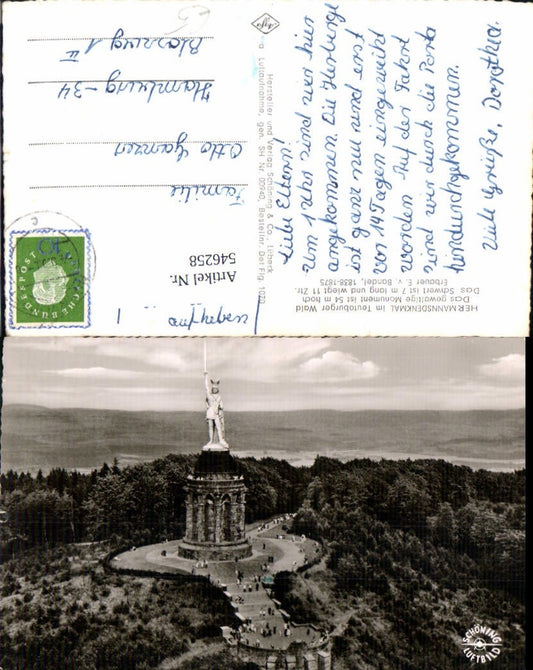 Liebe Eltern!
Um 1 Uhr sind wir hier
angekommen. Die Herberge
ist ganz neu und erst
vor 14 Tagen eingeweiht
worden. Auf der Fahrt
sind wir durch die Porta
hindurchgekommen.
Viele Grüße, Dorothea.
Familie
Otto Ganzen
Hamburg-34
II
Agfa
Hersteller und Verlag Schöning & Co., Lübeck
Luftaufnahme, gen. SH Nr. Bestellnr. Det Flg.
Artikel Nr.
546258
DEUTSCHE BUNDESPOST
HERMANNSDENKMAL im Teutoburger Wald
Das gewaltige Monument ist 54 m hoch
Das Schwert ist 7 m lang und wiegt 11 Ztr.
Erbauer E. v. Bandel, 1838-1875
SCHÖNING
LUFTBILD